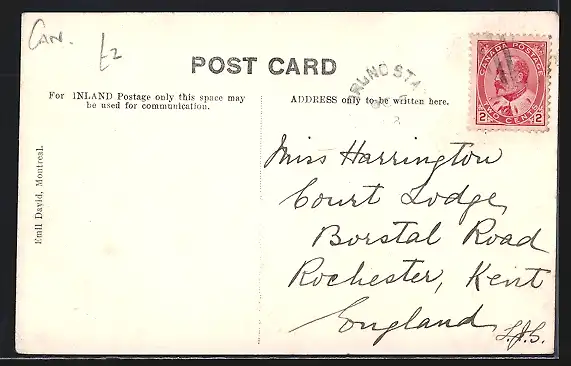 CAN.
£2
POST CARD
For INLAND Postage only this space may
be used for communication.
ADDRESS only to be written here.
CANADA POSTAGE
2 2
TWO CENTS
Emil David, Montreal.
Miss Harrington
Court Lodge,
Borstal Road
Rochester, Kent
England